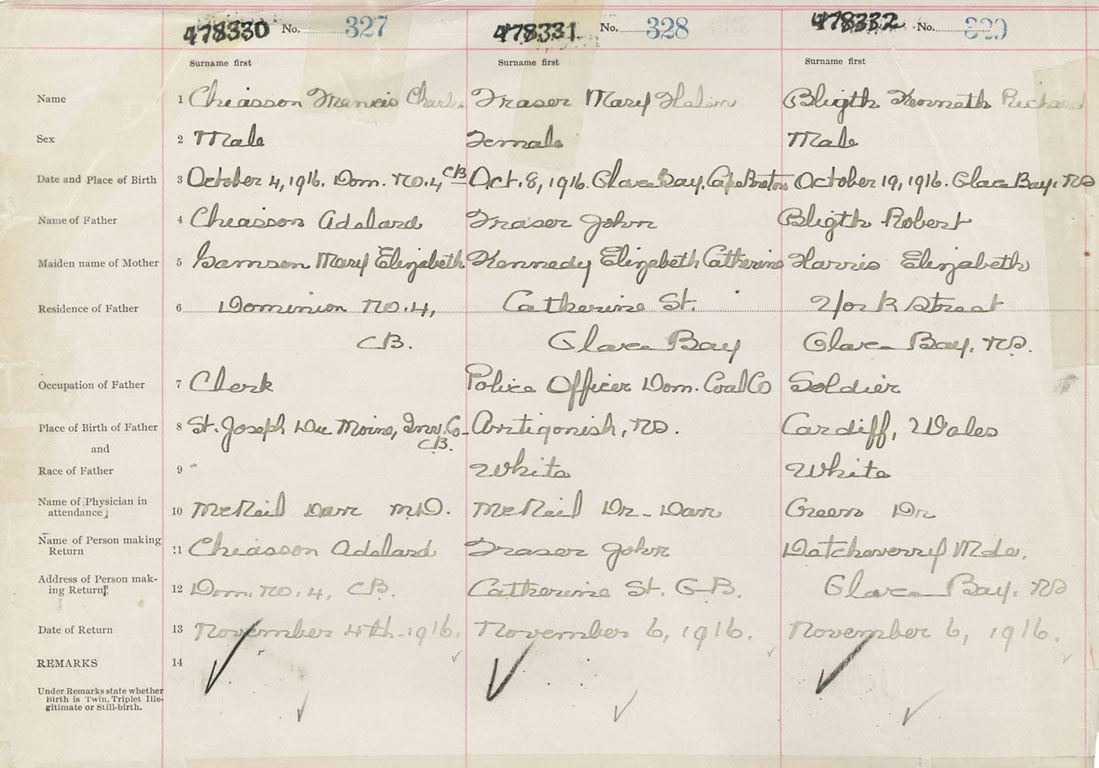 478330 No. 327 478331 No. 328 478332 No. 329
Surname first Surname first Surname first
Name 1 Chiasson Francis Charles Fraser Mary Helen Bligth Kenneth Richard
Sex 2 Male Female Male
Date and Place of Birth 3 October 4, 1916. Dom. No. 4, CB Oct. 8, 1916. Glace Bay, Cape Breton October 19, 1916. Glace Bay. NS
Name of Father 4 Chiasson Adelard Fraser John Bligth Robert
Maiden name of Mother 5 Samson Mary Elizabeth Kennedy Elizabeth Catherine Harris Elizabeth
Residence of Father 6 Dominion No. 4, Catherine St. York Street
CB. Glace Bay Glace Bay. NS.
Occupation of Father 7 Clerk Police Officer Dom. Coal Co Soldier
Place of Birth of Father 8 St. Joseph Du Moine, Inv. Co- Antigonish, NS. Cardiff, Wales
and CB.
Race of Father 9 White White
Name of Physician in
attendance 10 McNeil Dan M.D. McNeil Dr. Dan Green Dr
Name of Person making
Return 11 Chiasson Adelard Fraser John Mde.
Address of Person mak-
ing Return 12 Dom. No. 4, CB. Catherine St. G-B. Glace Bay. NS
Date of Return 13 November 4th-1916. November 6, 1916. November 6, 1916.
REMARKS 14
Under Remarks state whether
Birth is Twin, Triplet Ille-
gitimate or Still-birth.